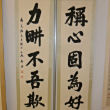 稱心因為好
力畊不吾欺